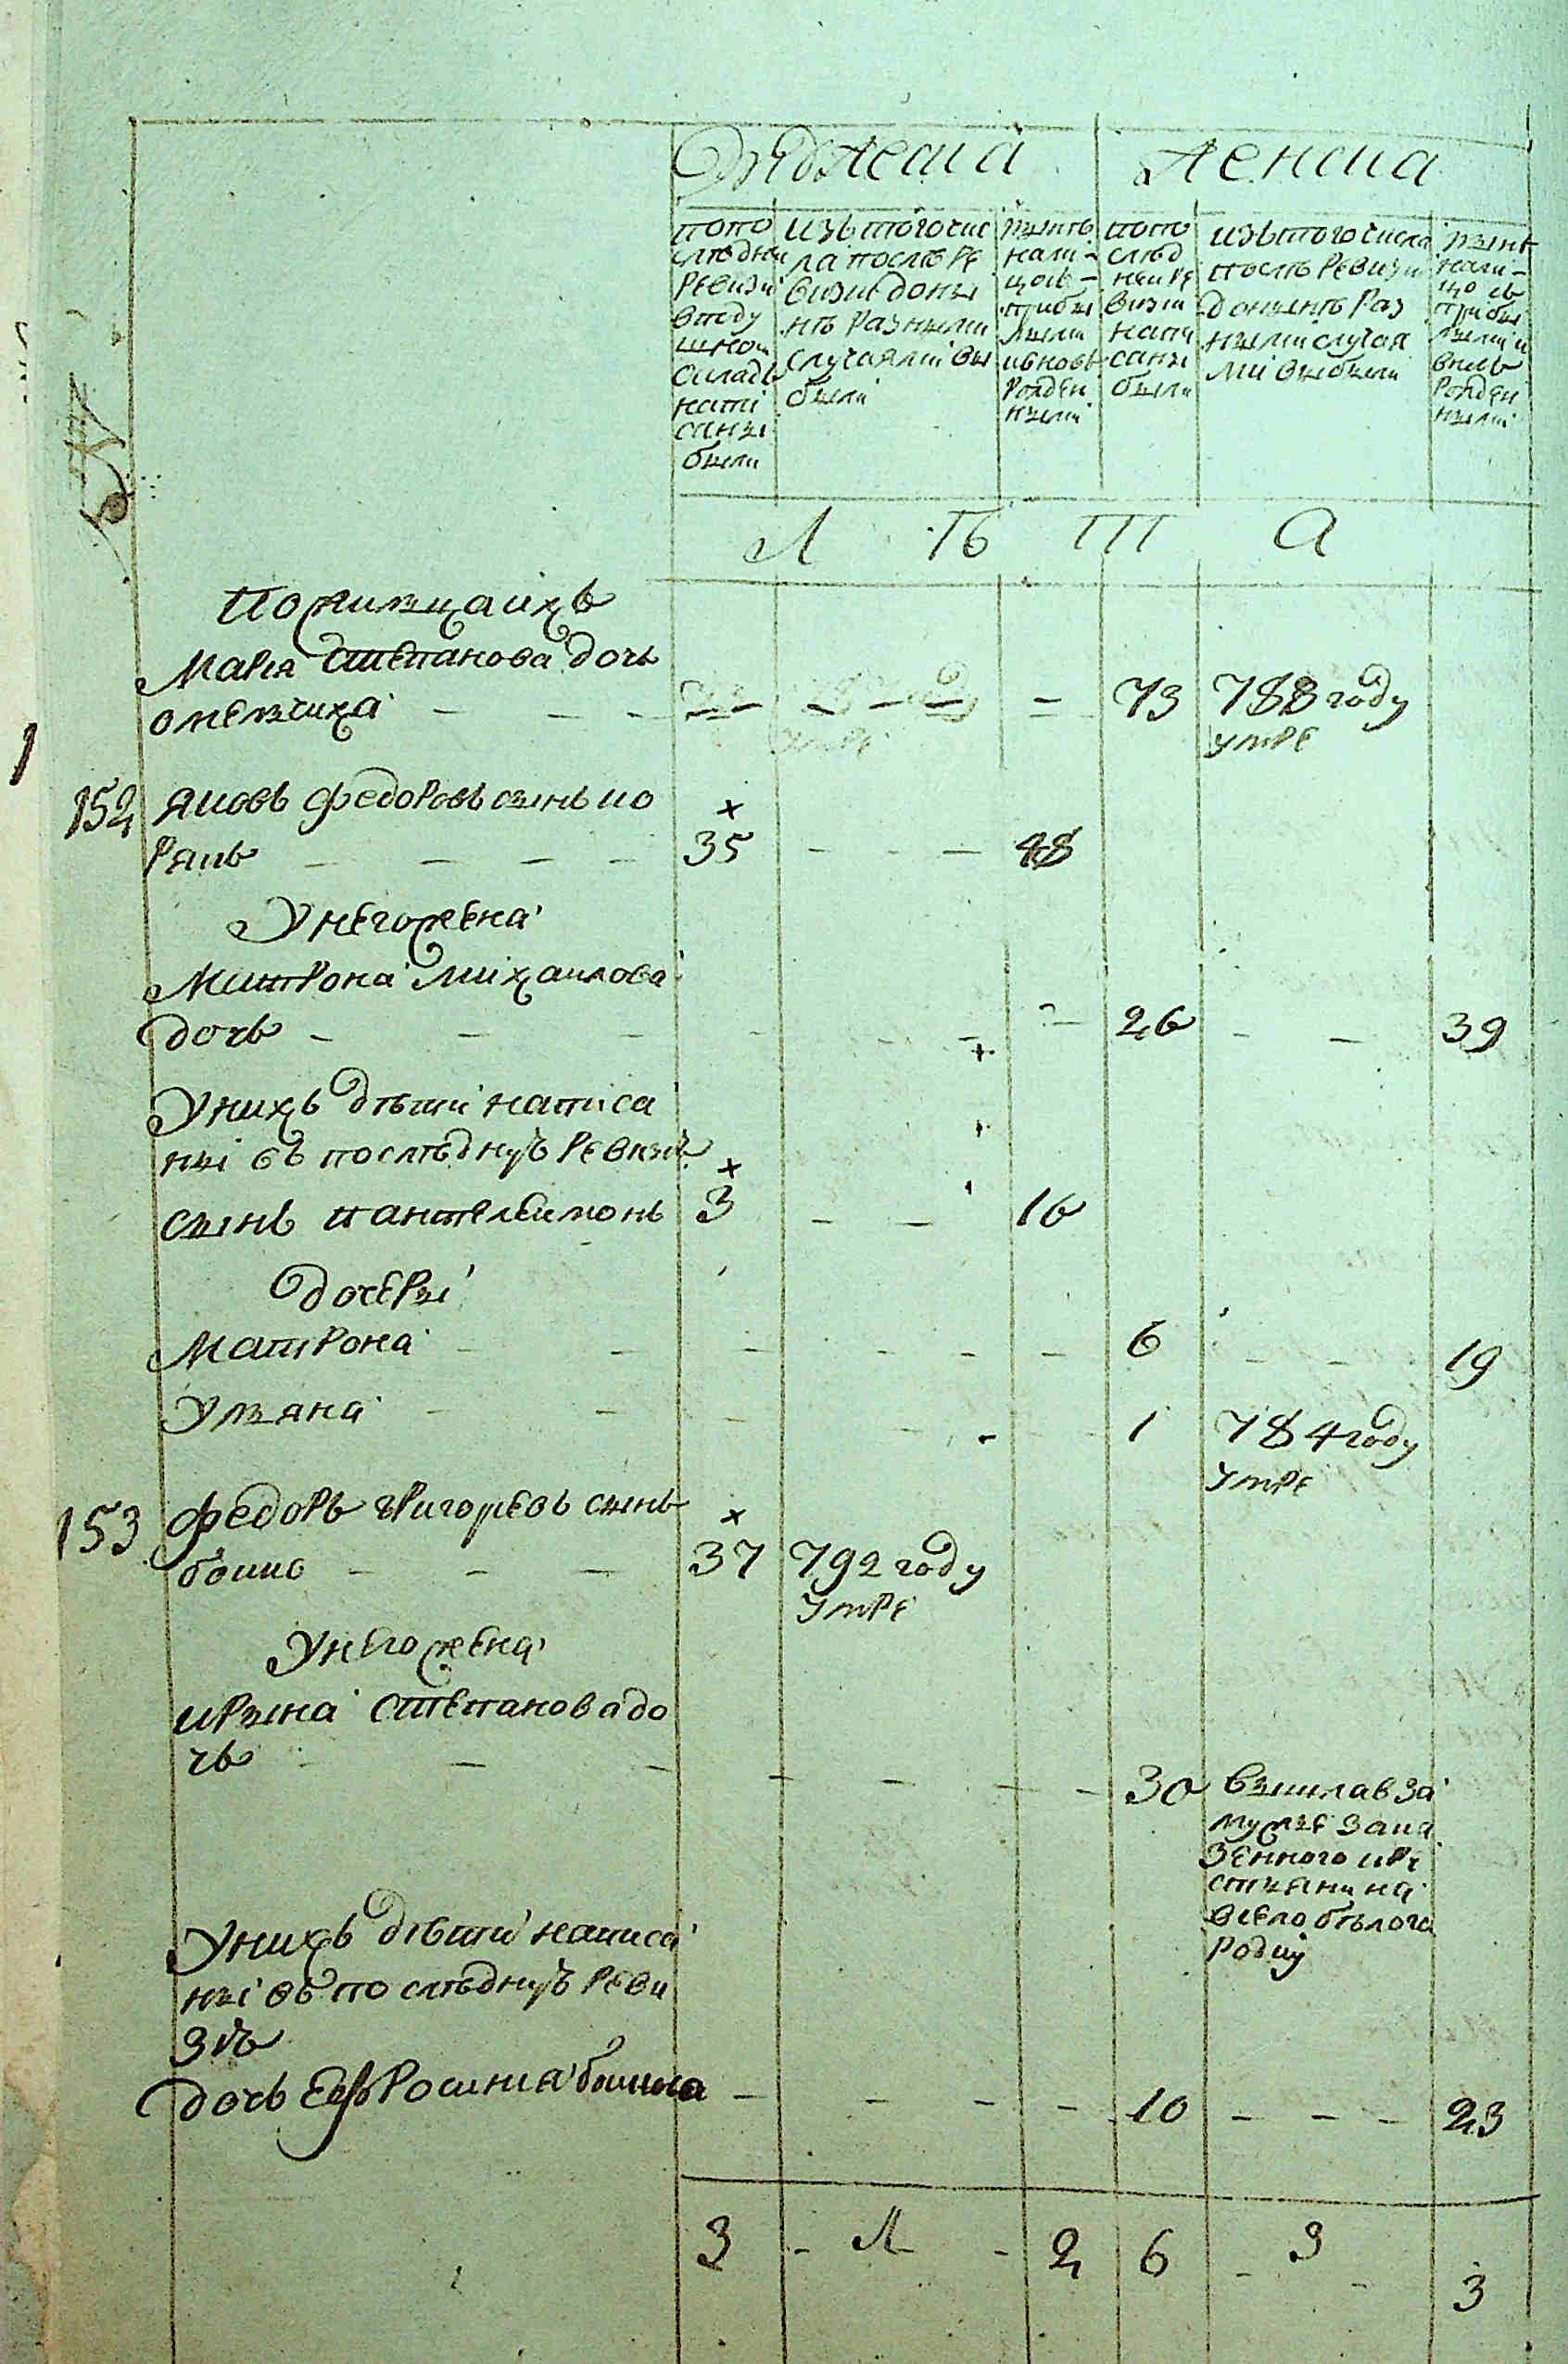 Мужеска
женска
по по
следней
ревизи
в поду
шной
окладъ
напи
саны
были
изъ того чис
ла после ре
визии доны
нѣ разными
случаями вы
были
нынѣ
нали-
цо съ
прибы
лыми
и вновь
рожден
ными
по по
след
ней ре
визи
напи
саны
были
изъ того числа
послѣ ревизи
до нынѣ раз
ными случая
ми выбыли
нынѣ
нали-
цо съ
прибы
лыми и
вновь
рожден
ными
Л Ѣ Т А
Мария степанова дочь
73 788 году
умре
152 яковъ федоровъ сынъ ко
рякъ 35 48
У него жена
Матрона михаилова
дочь 26 39
У нихъ дѣти написа
ны въ последную ревизию
сынъ пантелеимонъ 3 16
дочеры
Матрона 6 19
Уляна 1 784 году
умре
153 федоръ григоревъ сынъ
37 792 году
умре
У него жена
ирына степанова до
чь 30 вышла в за
мужъе за ка
зенного кре
стьянина
в село бѣлога
родку
У нихъ дѣти написа
ны въ последную реви
зию
дочь Евфросиния 10 23
3 - 1 - 2 6 - 3 - 3